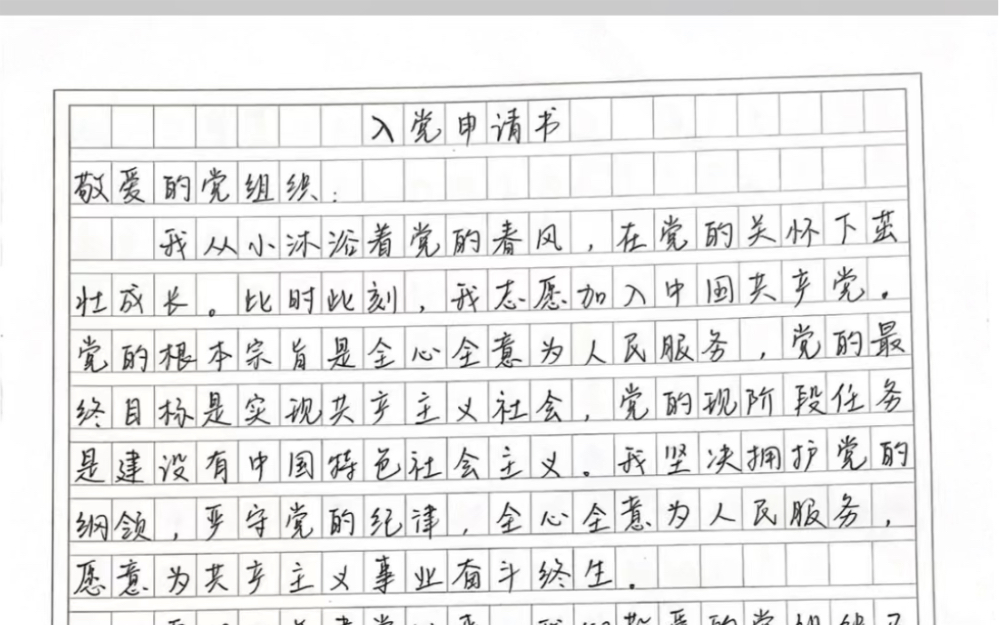 入党申请书
敬爱的党组织：
我从小沐浴着党的春风，在党的关怀下茁
壮成长。此时此刻，我志愿加入中国共产党。
党的根本宗旨是全心全意为人民服务，党的最
终目标是实现共产主义社会，党的现阶段任务
是建设有中国特色社会主义。我坚决拥护党的
纲领，严守党的纪律，全心全意为人民服务，
愿意为共产主义事业奋斗终生。